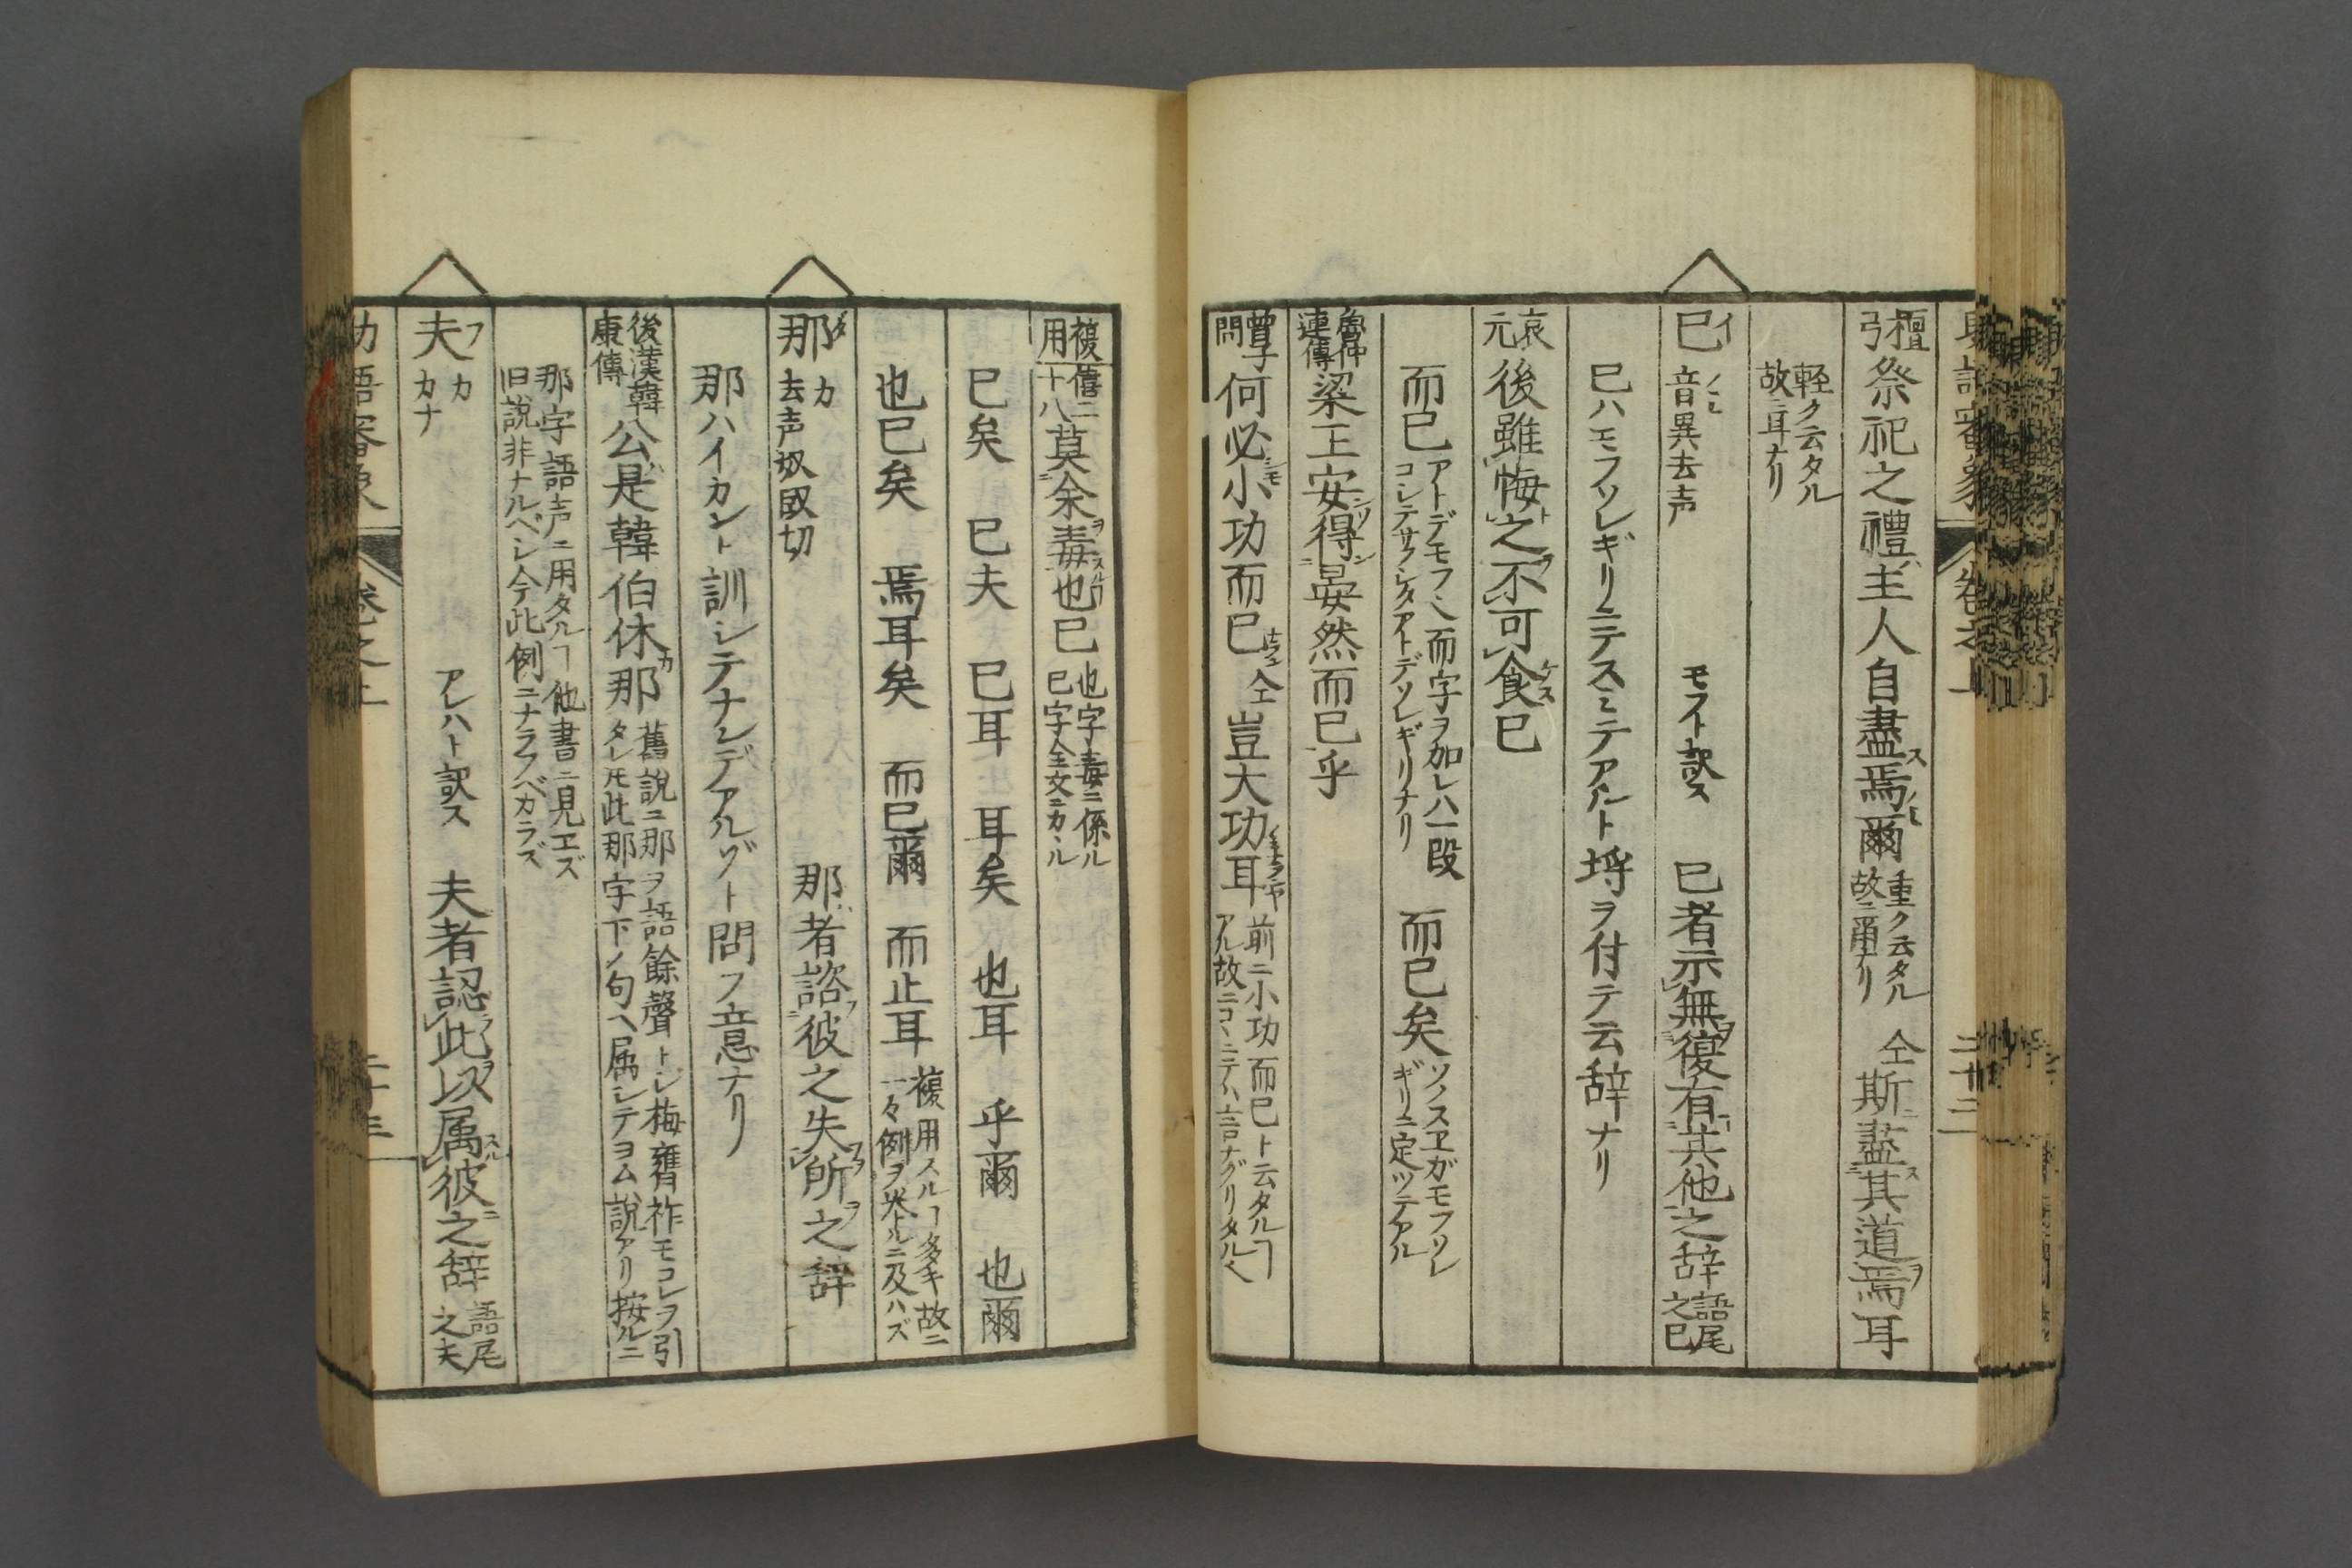 助語審象 卷之上 二十二
檀弓 祭祀之禮主人自盡焉爾 重ク云タル故ニ爾ナリ 仝 斯盡其道焉耳
軽ク云タル故ニ耳ナリ
已 イ 音異去声 モフト訳ス 已者示無復有其他之辞 語尾之已
已ハモフソレギリニテスミテアルト埓ヲ付テ云辞ナリ
哀元 後雖悔之不可食已
而已 アトデモフ而字ヲ加レハ一段コレテサクシタアトデソレギリナリ 而已矣 ソノスヱガモフソレギリニ定ツテアル
魯仲連傳 梁王安得晏然而已乎
曽子問 何必小功而已 仝 豈大功耳 前ニ小功而已ト云タルヿアル故ニコヽニテハ言ナグリタル
複用 僖二十八 莫余毒也已 也字毒ニ係ル已字全文ニカヽル
已矣 已夫 已耳 耳矣 也耳 乎爾 也爾
也已矣 焉耳矣 而已爾 而止耳 複用スルヿ多キ故ニ一々例ヲ挙ルニ及ハズ
那 カ 去声奴臥切 那者諮彼之失所之辞
那ハイカント訓シテナンデアルゾト問フ意ナリ
後漢韓康傳 公是韓伯休那 舊説ニ那ヲ語餘聲トシ梅膺祚モコレヲ引タレ𪜈此那字下ノ句ヘ属シテヨム説アリ按ルニ
那字語声ニ用タルヿ他書ニ見エズ旧説非ナルベシ今此例ニナラフベカラズ
夫 フ カ カナ アレハト訳ス 夫者認此以属彼之辞 語尾之夫
助語審象 卷之上 二十三